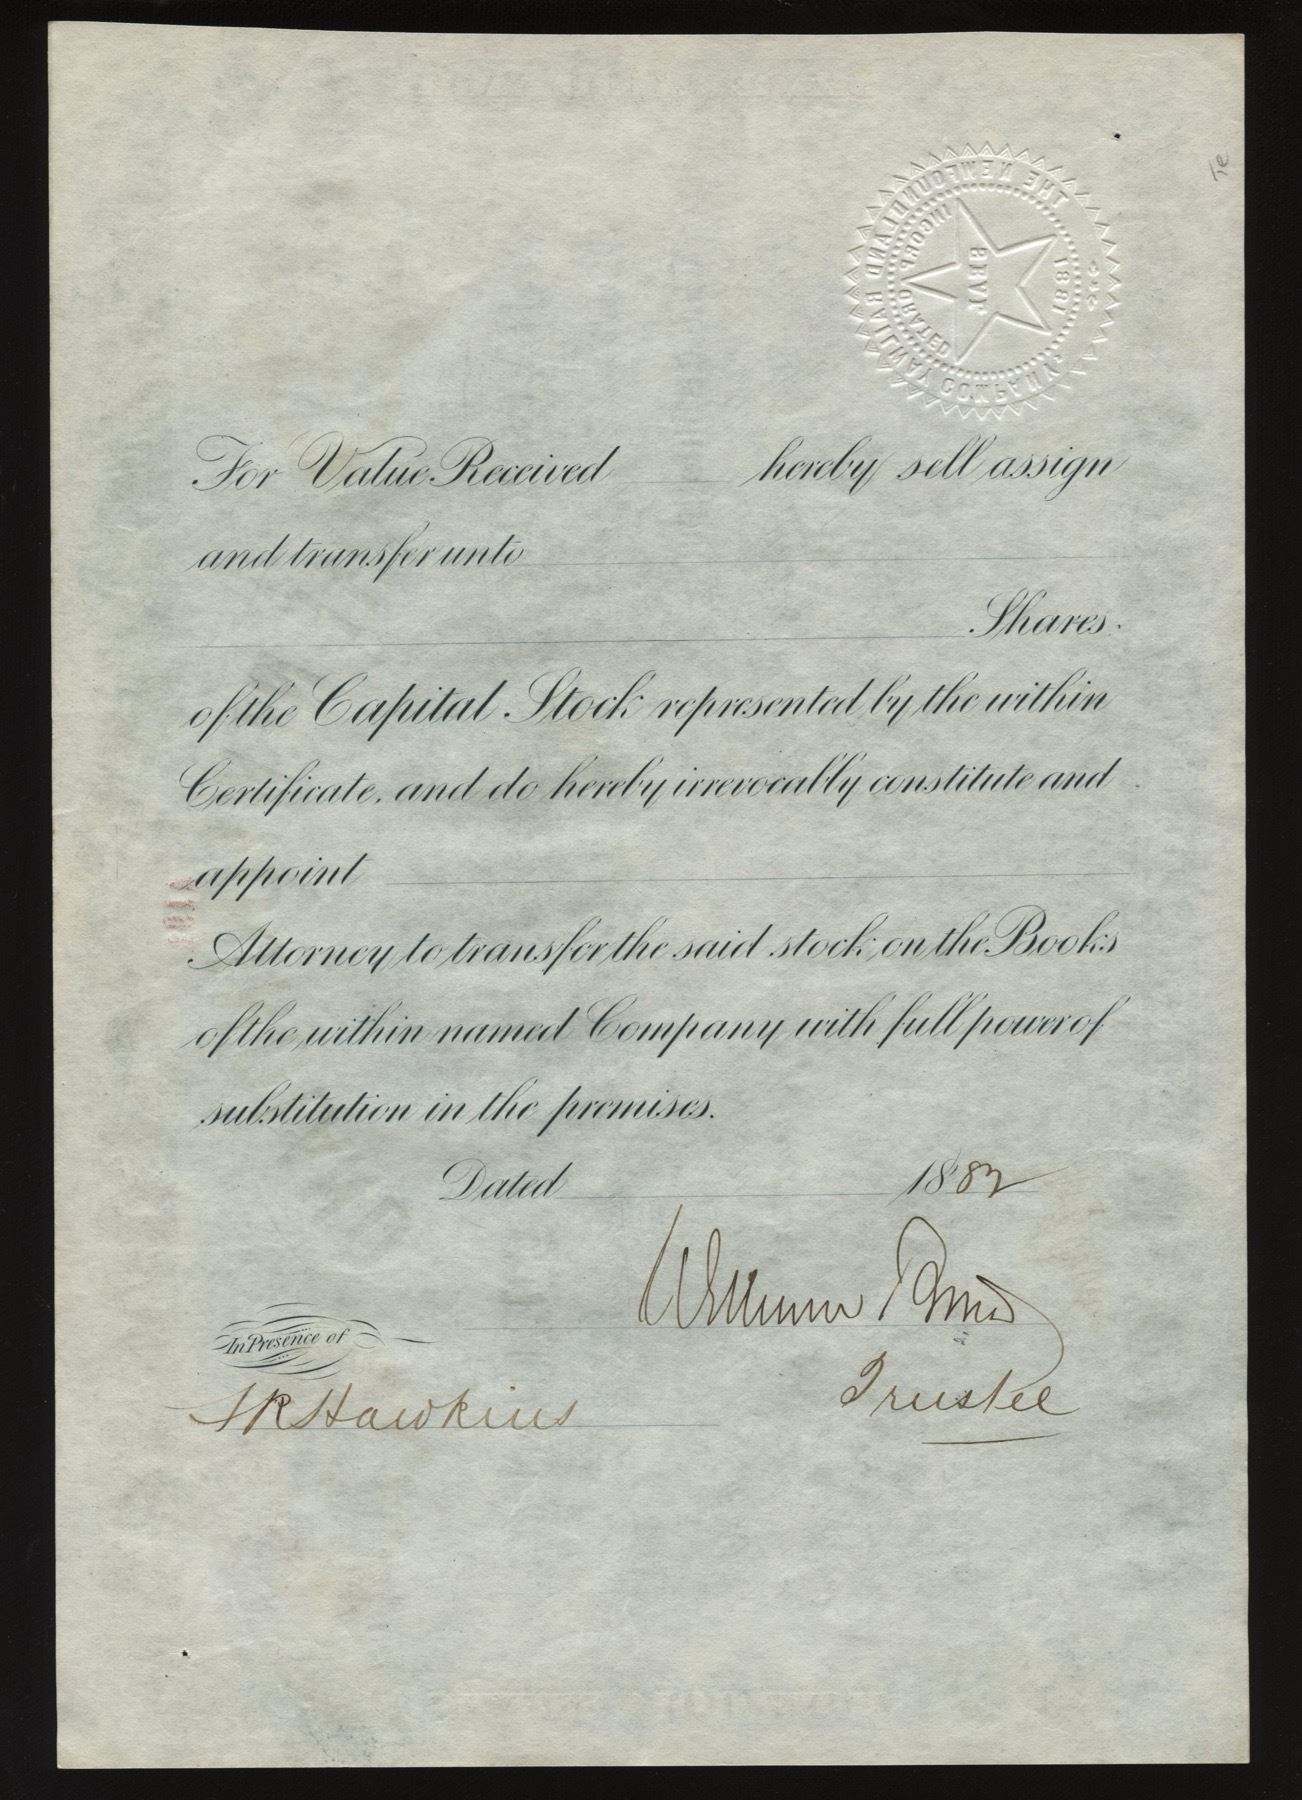 THE NEWFOUNDLAND RAILWAY COMPANY.
INCORPORATED
SEAL
1881
For Value Received hereby sell assign
and transfer unto
Shares
of the Capital Stock represented by the within
Certificate, and do hereby irrevocably constitute and
appoint
Attorney to transfer the said stock on the Books
of the within named Company with full power of
substitution in the premises.
Dated 1882
William
In Presence of
Trustee
Hawkins